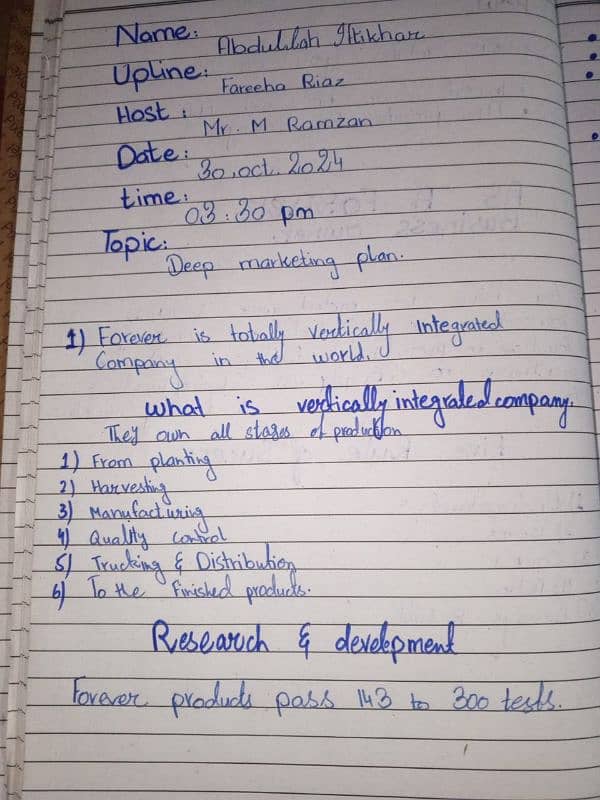 Name: Abdullah Iftikhar
Upline: Fareeha Riaz
Host: Mr. M Ramzan
Date: 30.oct.2024
time: 03:30 pm
Topic: Deep marketing plan.
1) Forever is totally vertically Integrated
Company in the world.
What is vertically integrated company.
They own all stages of production
1) From planting
2) Harvesting
3) Manufacturing
4) Quality control
5) Trucking & Distribution
6) To the finished products.
Research & development
Forever products pass 143 to 300 tests.